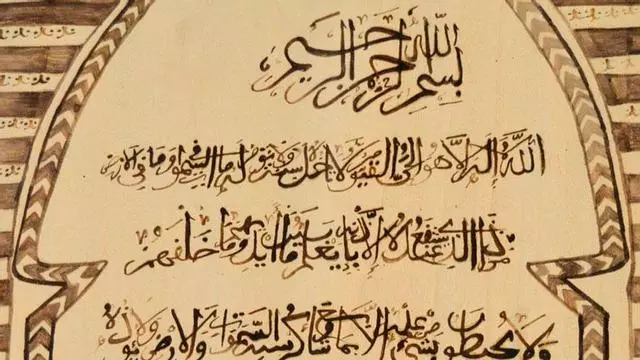 بسم الله الرحمن الرحيم
الله لا إله إلا هو الحي القيوم لا تأخذه سنة ولا نوم له ما في السموات وما في الأرض
من ذا الذي يشفع عنده إلا بإذنه يعلم ما بين أيديهم وما خلفهم
ولا يحيطون بشيء من علمه إلا بما شاء وسع كرسيه السموات والأرض ولا يؤده